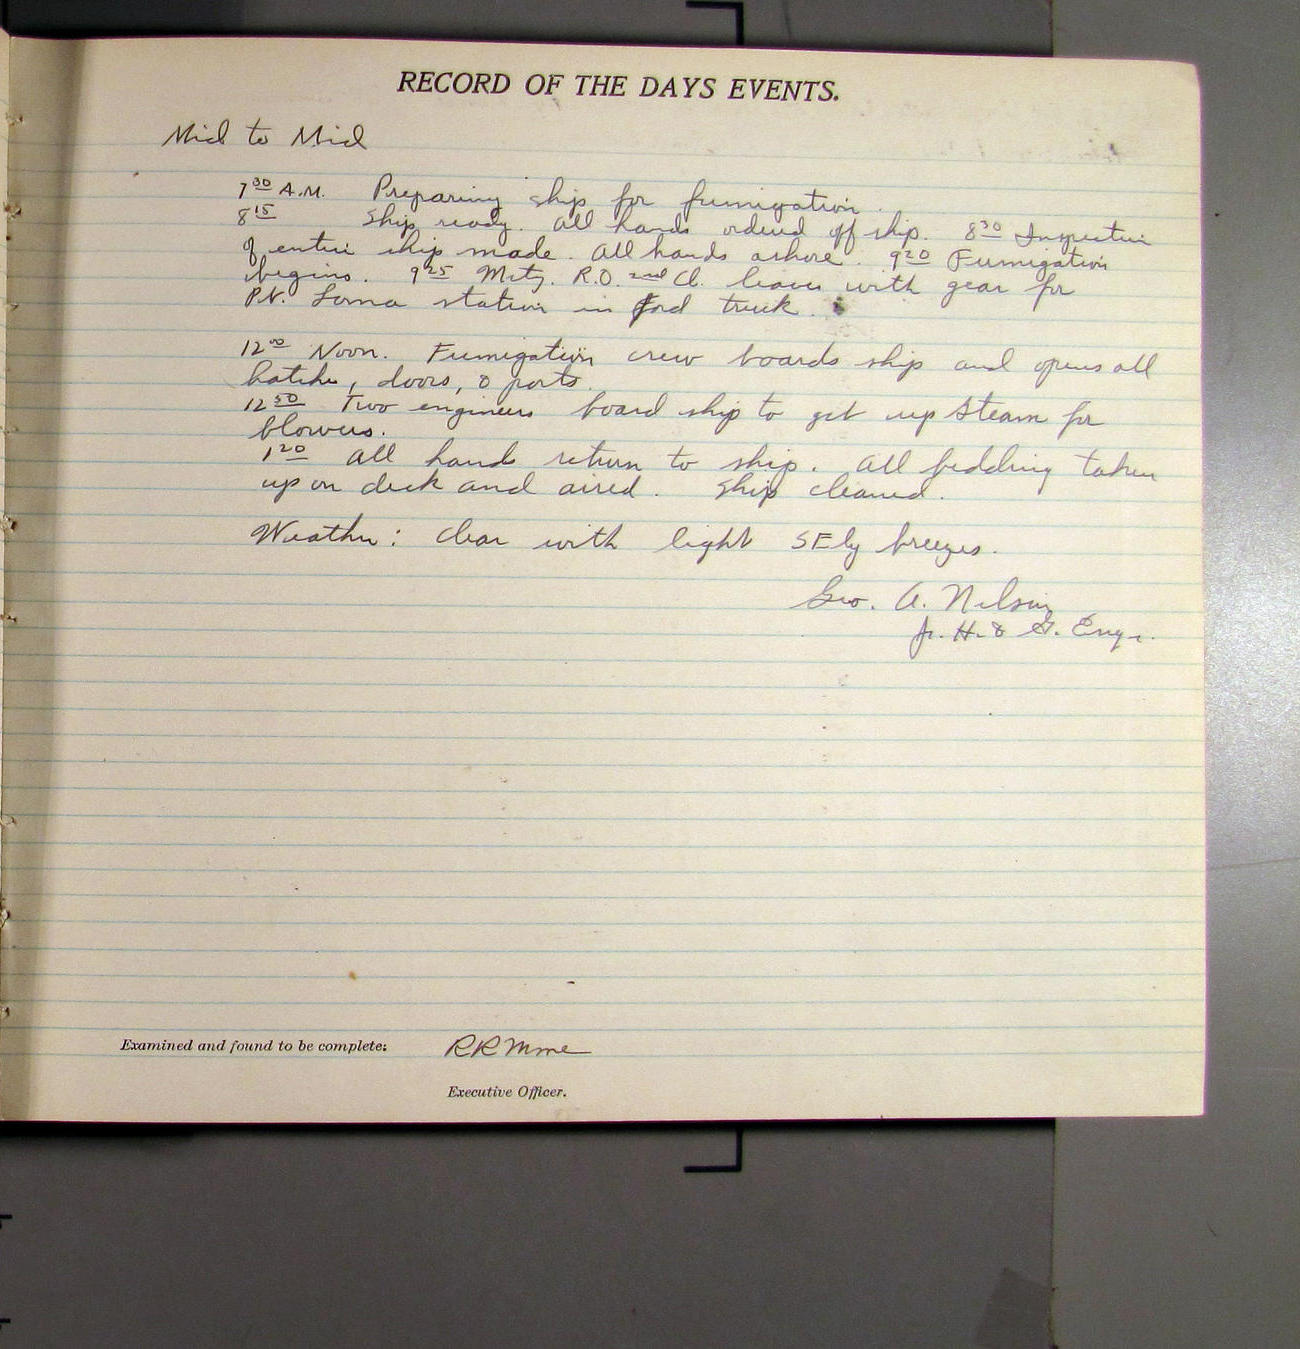 RECORD OF THE DAYS EVENTS.
Mid to Mid
7 30 A.M. Preparing ship for fumigation.
8 15 Ship ready. All hands ordered off ship. 8 30 Inspection
of entire ship made. All hands ashore. 9 20 Fumigation
begins. 9 25 Metz. R.O. 2nd Cl. leaves with gear for
Pt. Loma station in Ford truck.
12 00 Noon. Fumigation crew boards ship and opens all
hatches, doors, & ports.
12 50 Two engineers board ship to get up steam for
blowers.
1 20 All hands return to ship. All bedding taken
up on deck and aired. Ship cleaned.
Weather: Clear with light SEly breezes.
Geo. A. Nelson
Jr. H. & G. Engr.
Examined and found to be complete:
Executive Officer.